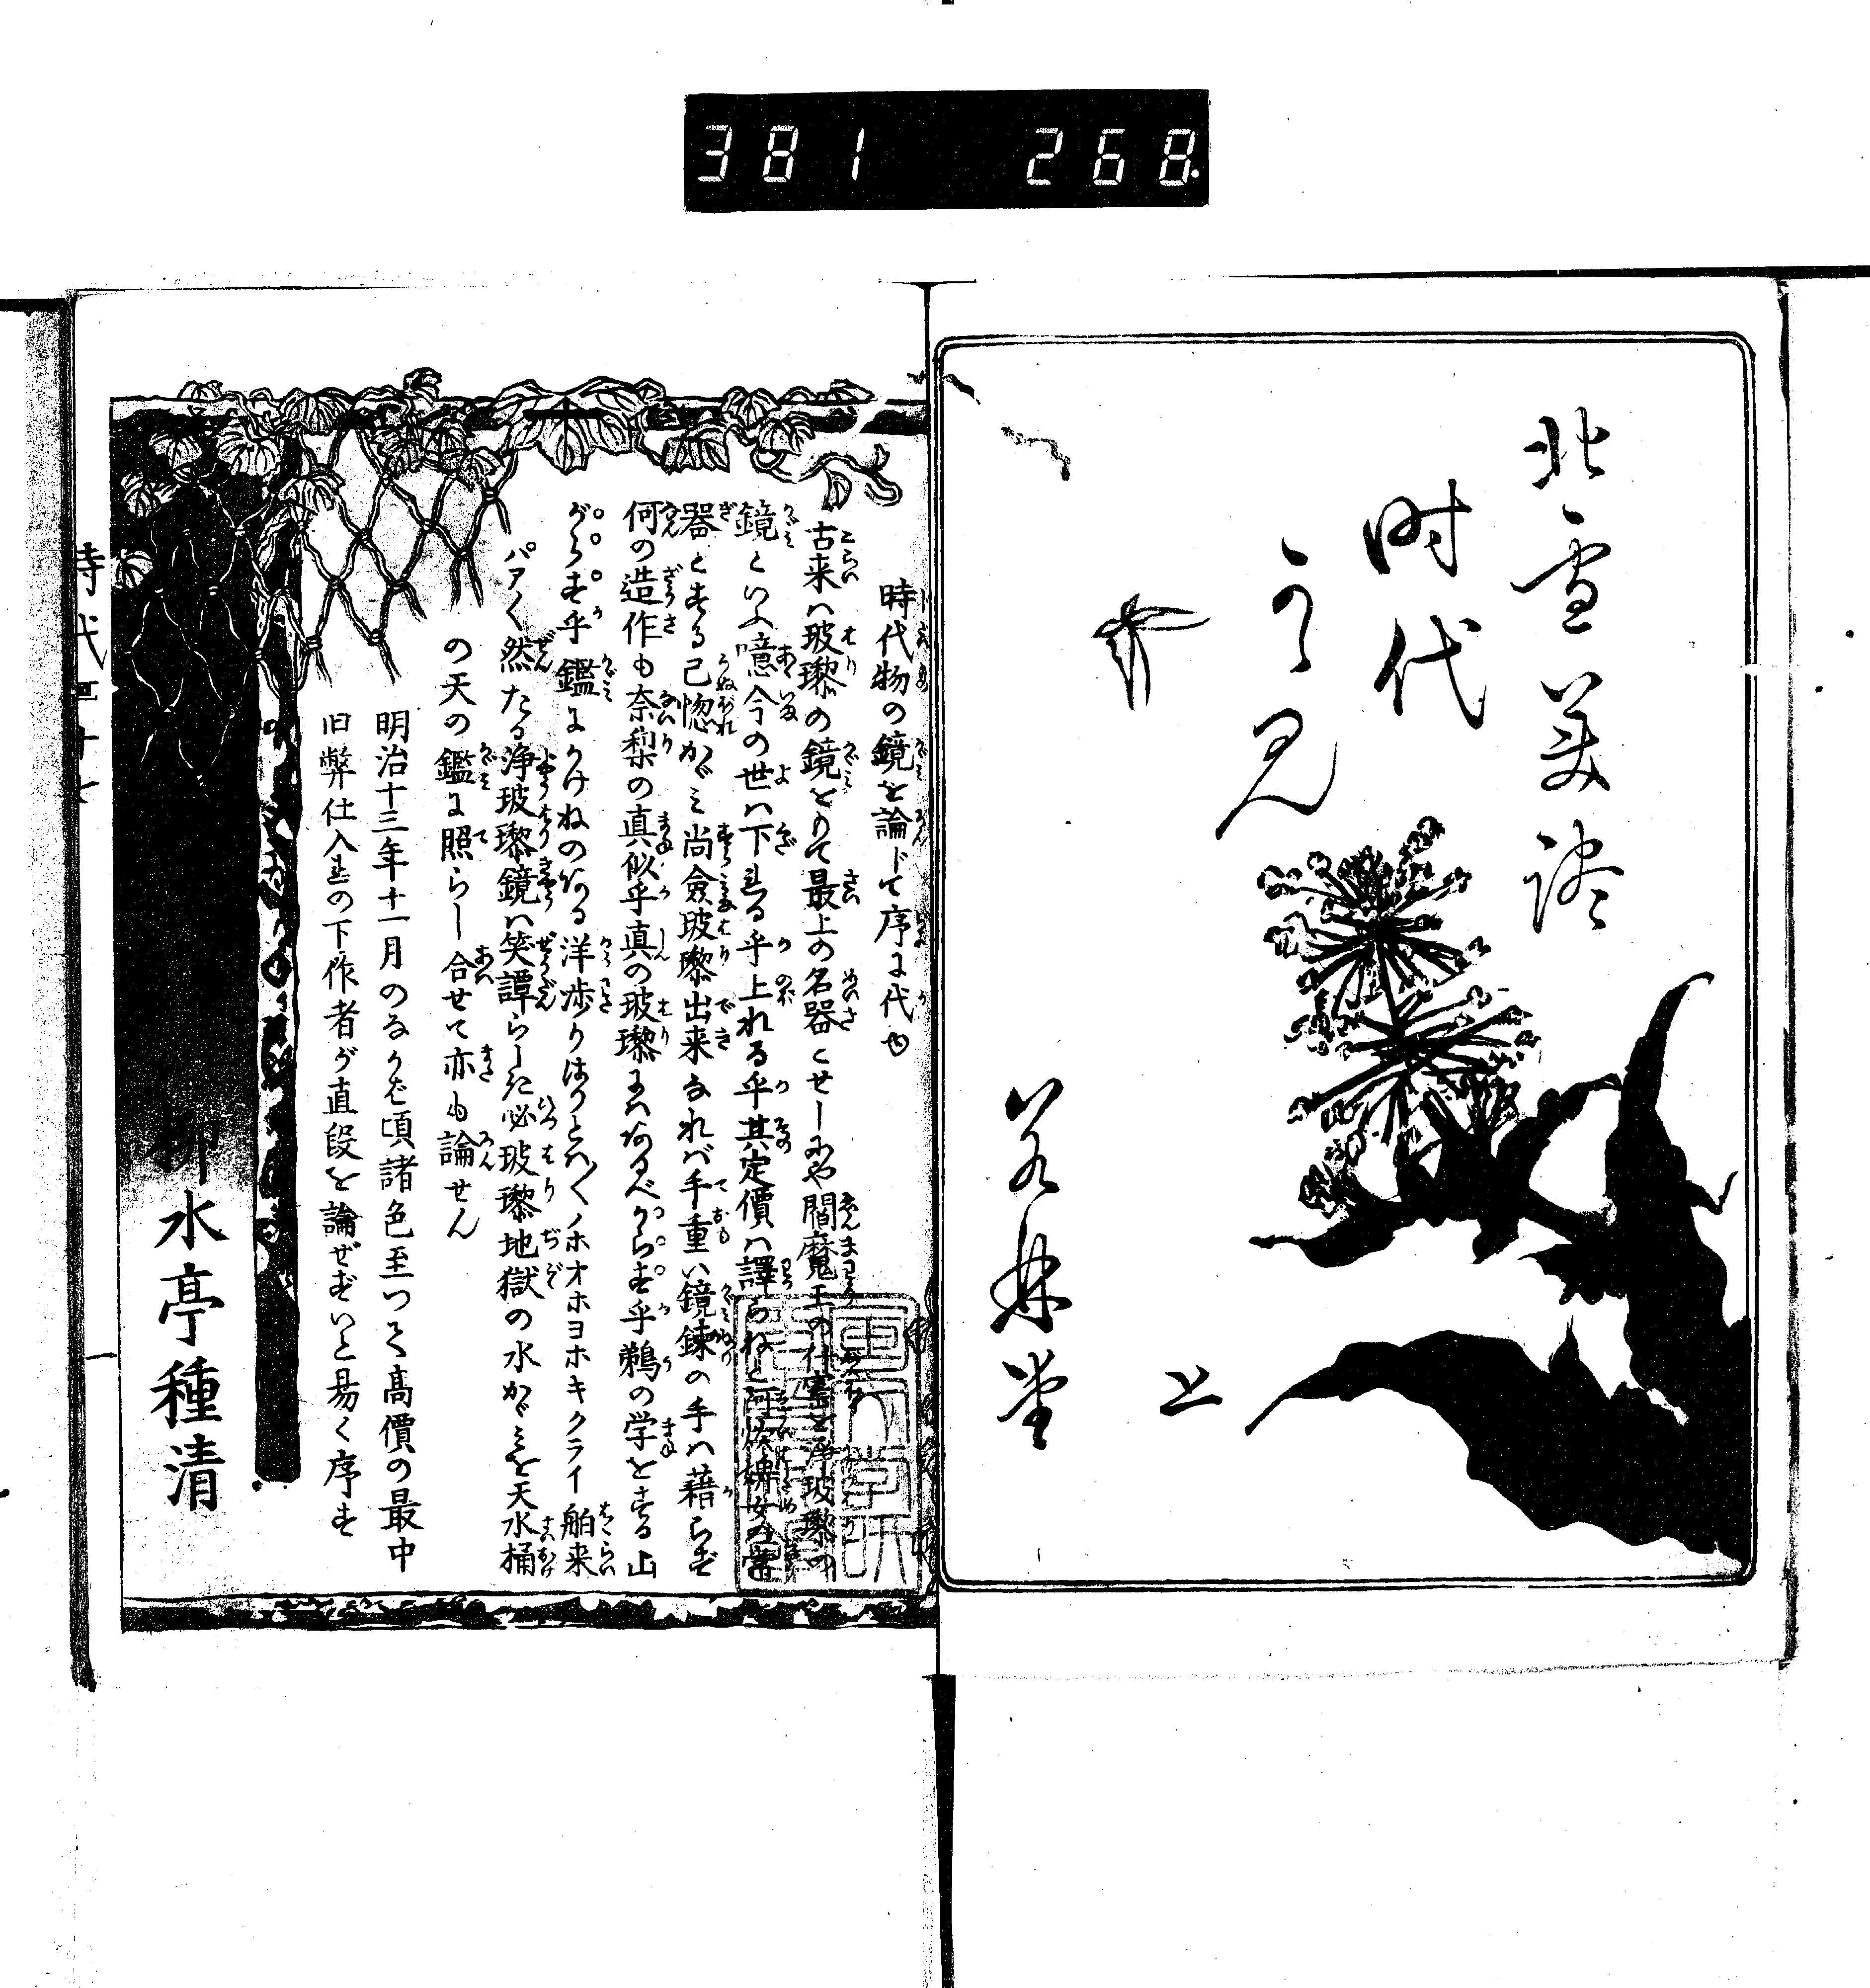 381 268
北雪美談
时代
かゞ見
卅
若林堂
上
時代物の鏡を論じて序に代ゆ
古来ハ玻瓈の鏡をもて最上の名器とせしにや閻魔王の什寳を浄玻瓈の
鏡といふ噫今の世ハ下れる乎上れる乎其定價ハ譯らねと
器とする己惚かゞミ尚僉玻瓈出来なれバ手重い鏡錬の手ハ藉らず
何の造作も奈梨の真似乎真の玻瓈にハあるべからず乎鵜の学をする山
がらす乎鑑にかけねのある洋渉りはりとハ〳〵ノホオホヨホキクライ舶来
パア〳〵然たる浄玻瓈鏡ハ笑譚らしだ必玻瓈地獄の水かゞミを天水桶
の天の鑑に照らし合せて亦も論せん
明治十三年十一月のなかば頃諸色至つて高價の最中
旧弊仕入連の下作者が直段を論ぜずいと易く序す
柳水亭種清